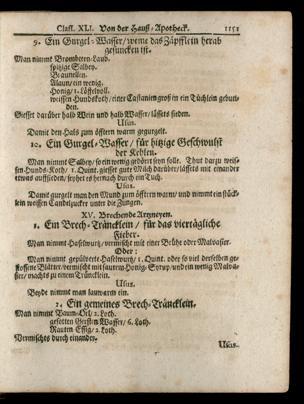 Classl. XLI. Von der Hauß-Apotheck. 1151
9. Ein Gurgel-Wasser/wenn das Zäpfflein herab
gesuncken ist.
Man nimmt Brombeern-Laub.
spitzige Salbey.
Braunellen.
Alaun/ ein wenig.
Honig/ 1. Löffelvoll.
weissen Hundskoth/ einer Castanien groß in ein Tüchlein gebun-
den.
Giesset darüber halb Wein und halb Wasser/ lässets sieden.
Usus.
Damit den Hals zum öfftern warm gegurgelt.
10. Ein Gurgel-Wasser/ für hitzige Geschwulst
der Kehlen.
Man nimmt Salbey/ so ein wenig gedörrt seyn solle. Thut darzu weis-
sen Hunds-Koth/ 1. Quint. giesset gute Milch darüber/ lässets mit einander
etwas aufsieden/ seihet es hernach durch ein Tuch.
Usus.
Damit gurgelt man den Mund zum öfftern warm/ und nimmt ein stück-
lein weissen Candelzucker unter die Zungen.
XV. Brechende Artzneyen.
1. Ein Brech-Träncklein/ für das viertägliche
Fieber.
Man nimmt Haselwurtz/ vermischt mit einer Brühe oder Malvasier.
Oder:
Man nimmt gepülverte Haselwurtz/ 1. Quint. oder so viel derselben ge-
stossene Blätter/ vermischt mit saurem Honig-Syrup/ und ein wenig Malva-
sier/ machts zu einem Träncklein.
Usus.
Beyde nimmt man lauwarm ein.
2. Ein gemeines Brech-Träncklein.
Man nimmt Baum-Oel/ 2. Loth.
gesotten Gersten Wasser/ 6. Loth.
Rauten Essig/ 2. Loth.
Vermischts durch einander.
Usus.